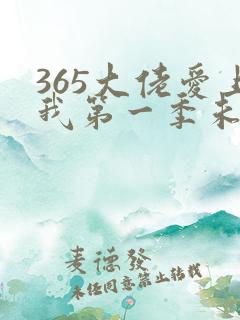 365大佬爱上
我第一季未
麦德發
未经同意禁止转载